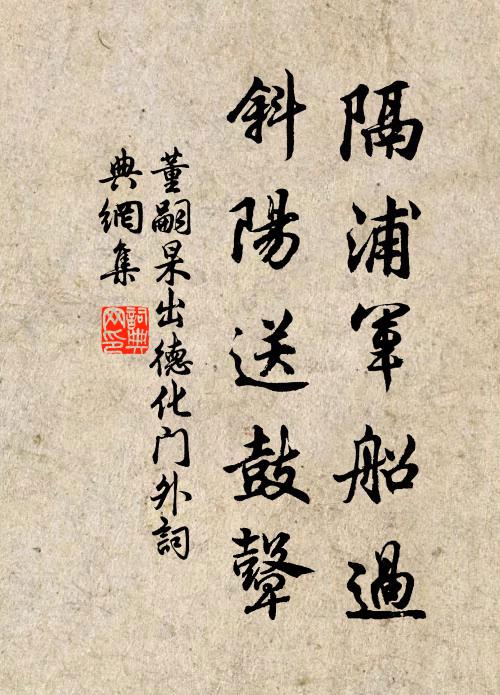 隔浦軍船過
斜陽送鼓鼙
董嗣杲出德化門外詞
典網集
詞典
网印